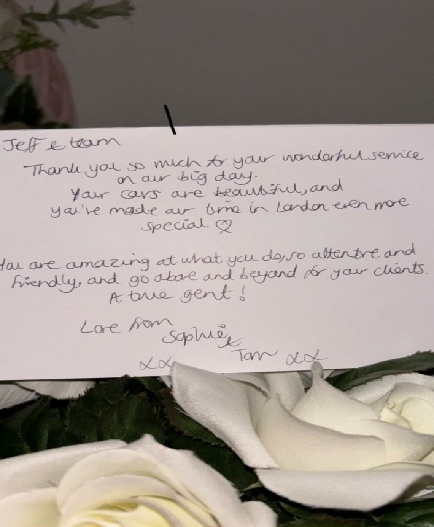 Jeff & team
Thank you so much for your wonderful service
on our big day.
Your cars are beautiful, and
you've made our time in London even more
special ♡
You are amazing at what you do, so attentive and
friendly, and go above and beyond for your clients.
A true gent!
Love from
Sophie &
xx Tom xx